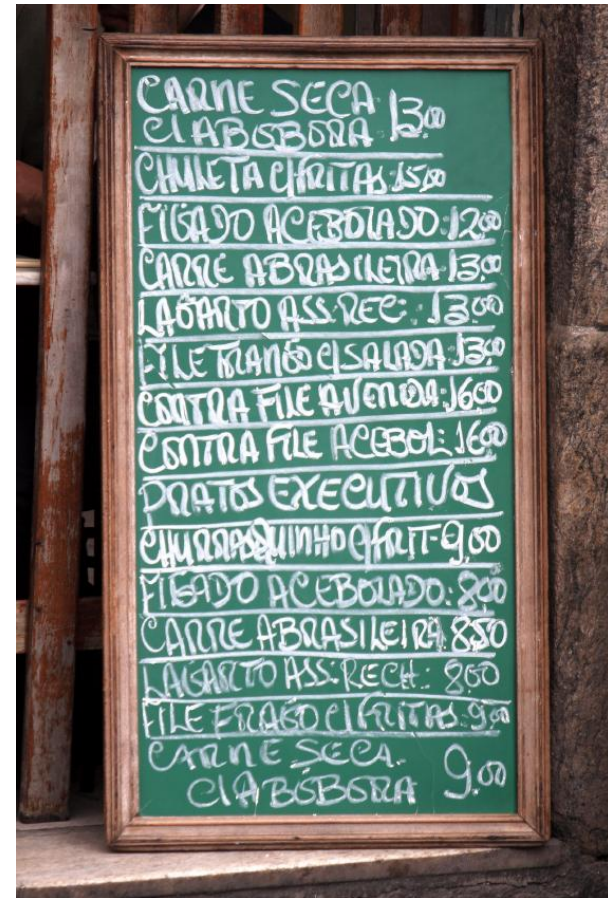 CARNE SECA
C/ABOBORA 13,00
CHULETA C/FRITAS: 15,00
FIGADO ACEBOLADO: 12,00
CARRE ABRASILEIRA 13,00
LAGARTO ASS: REC: 13,00
FILE FRANGO C/SALADA: 13,00
CONTRA FILE AVENIDA: 16,00
CONTRA FILE ACEBOL: 16,00
PRATOS EXECUTIVOS
CHURRASQUINHO C/FRIT- 9,00
FIGADO ACEBOLADO: 8,00
CARRE ABRASILEIRA: 8,50
LAGARTO ASS: RECH: 8,00
FILE FRAGO C/FRITAS: 9,00
CARNE SECA.
C/ABOBORA 9,00